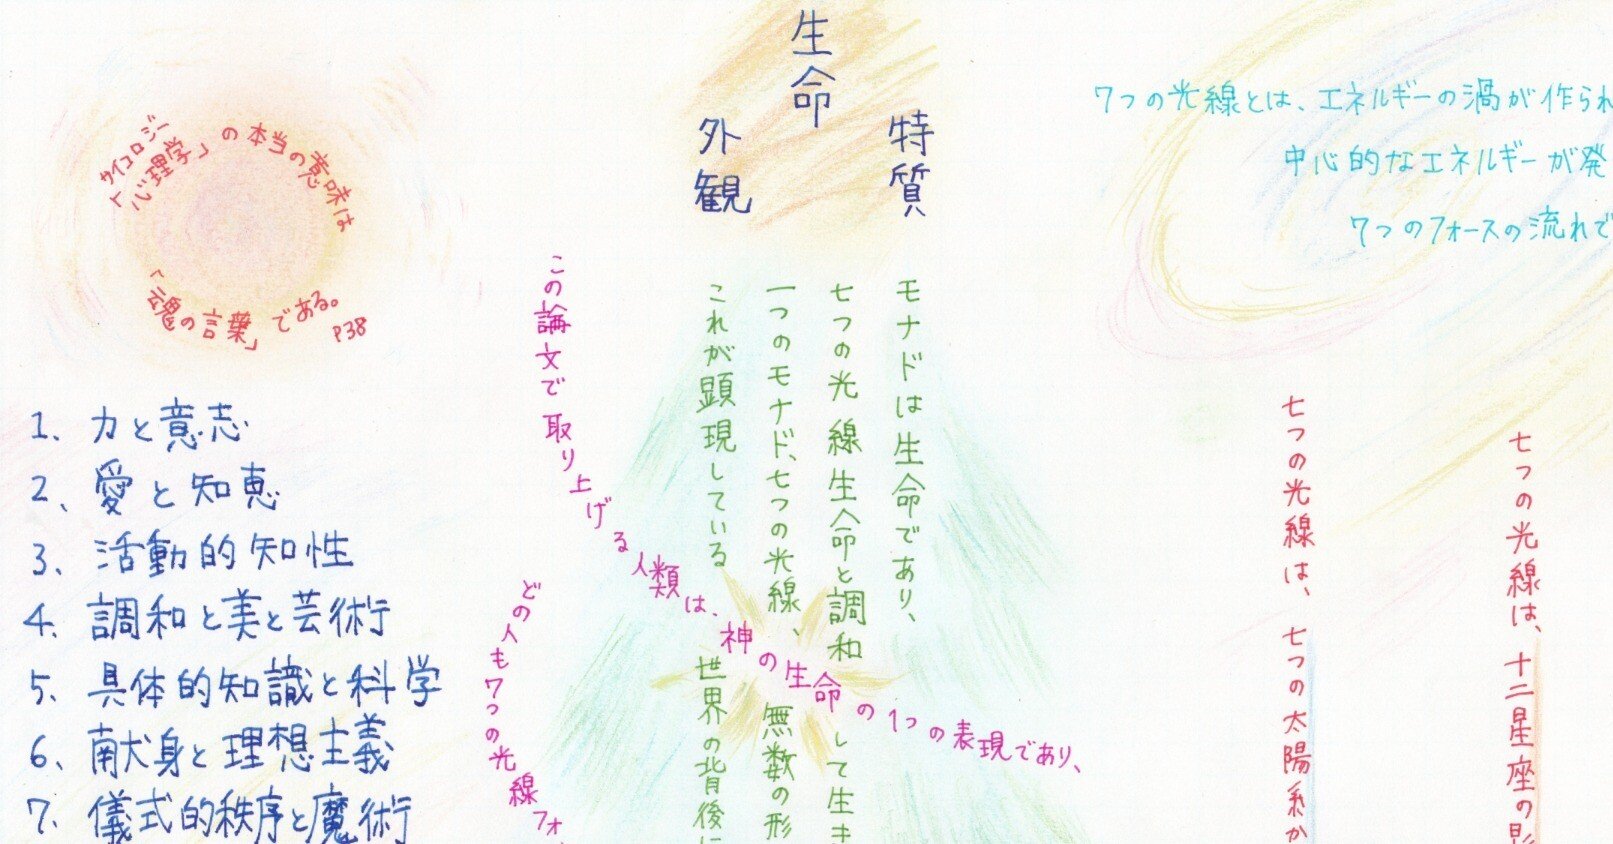 サイコロジー
「心理学」の本当の意味は
「魂の言葉」である。
P38
1、力と意志
2、愛と知恵
3、活動的知性
4、調和と美と芸術
5、具体的知識と科学
6、献身と理想主義
7、儀式的秩序と魔術
生命
外観
特質
モナドは生命であり、
七つの光線生命と調和して生き
一つのモナド、七つの光線、無数の形
これが顕現している世界の背後に
この論文で取り上げる人類は、神の生命の1つの表現であり、
どの人も7つの光線フォ
7つの光線とは、エネルギーの渦が作られ
中心的なエネルギーが発
7つのフォースの流れで
七つの光線は、十二星座の影
七つの光線は、七つの太陽系か